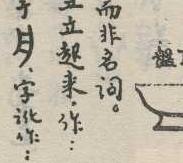 而非名词。
立起来,作…
月,字讹作…
盤